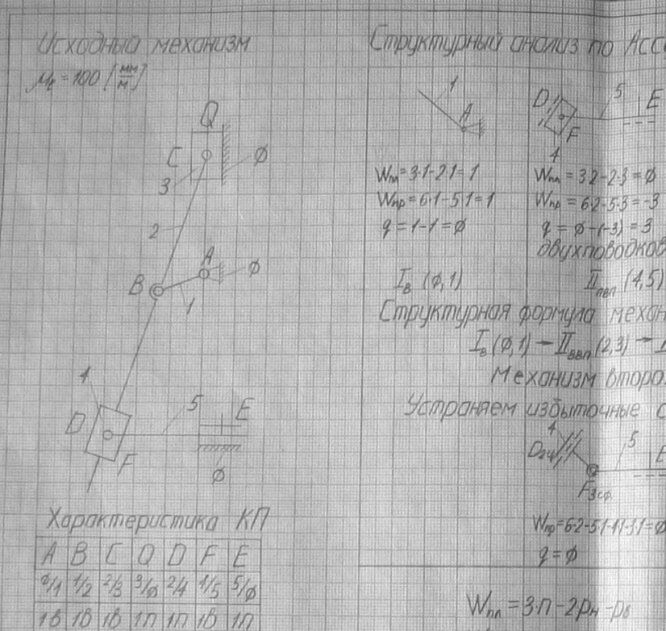 Исходный механизм
μℓ = 100 [мм/м]
Q
C
3
ø
2
A
B
ø
1
4
D
5
E
F
ø
Характеристика КП
A B C Q D F E
0/1 1/2 2/3 3/ø 2/4 4/5 5/ø
1в 1в 1в 1п 1п 1в 1п
Структурный анализ по Ассу
1
A
Wпл = 3·1-2·1 = 1
Wпр = 6·1-5·1 = 1
q = 1-1 = ø
I в (ø,1)
D
5
E
F
4
Wпл = 3·2-2·3 = ø
Wпр = 6·2-5·3 = -3
q = ø-(-3) = 3
двухповодков
II пвп (4,5)
Структурная формула механ
I в (ø,1) → II ввп (2,3) →
Механизм второ
Устраняем избыточные с
4
D2ц
5
E
F3сф
Wпр = 6·2-5·1-4·1-3·1 = ø
q = ø
Wпл = 3·n - 2pн - pв